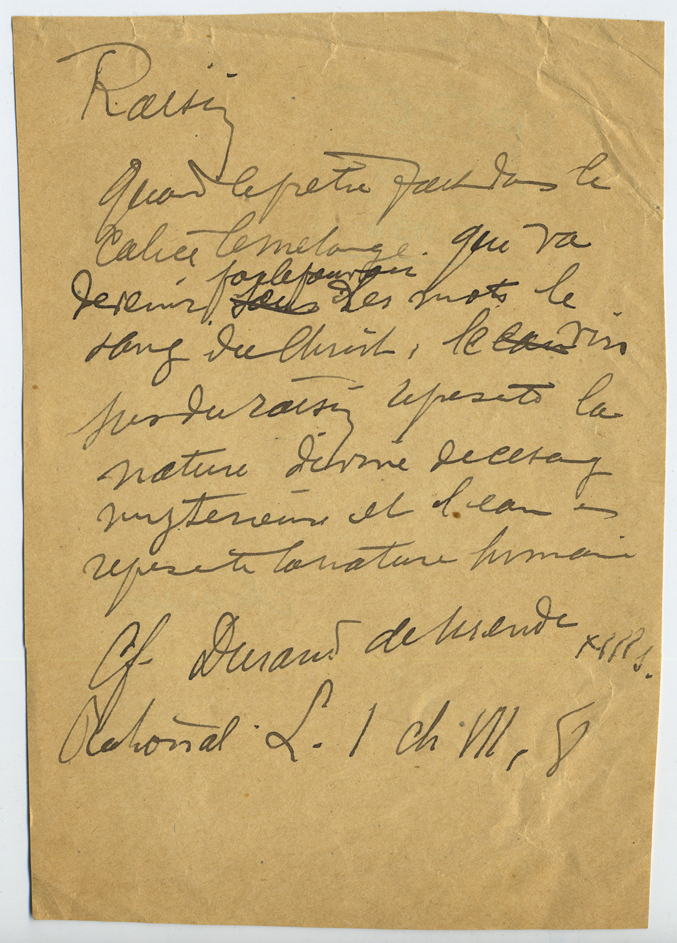 Raisin
Quand le prêtre fait dans le
Calice le mélange que va
par le pouvoir
devenir sous des mots le
sang du Christ, le eau vin
jus du raisin represente la
nature divine de ce sang
mysterieux et l'eau en
represente la nature humaine
Cf. Durand de Mende XIII s.
Rational. L. 1 ch VII, 8